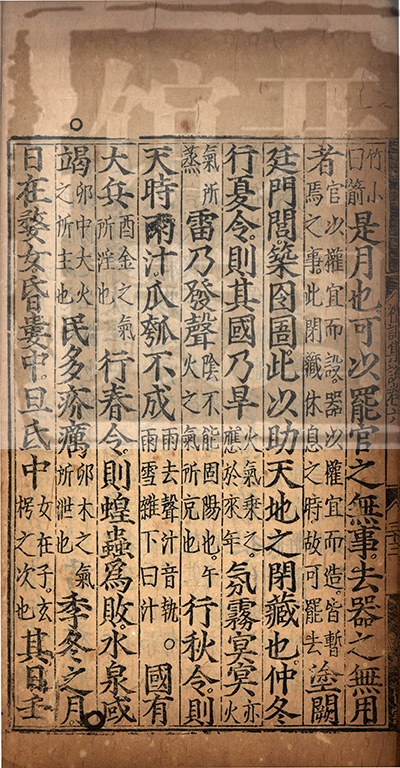 竹小曰箭是月也可以罷官之無事去器之無用
者官以權宜而設器以權宜而造皆暫焉之事此閉藏休息之時故可罷去塗闕
廷門閭築囹圄此以助天地之閉藏也仲冬
行夏令則其國乃旱火氣乘之應於來年氛霧冥冥亦火
氣所蒸雷乃發聲陰不能固陽也午火之氣所克也行秋令則
天時雨汁瓜瓠不成雨去聲汁音執○雨雪雜下曰汁國有
大兵酉金之氣所淫也行春令則蝗蟲為敗水泉咸
竭卯中大火之所主也民多疥癘卯木之氣所泄也季冬之月
日在婺女昏婁中旦氐中女在子玄枵之次也其日壬